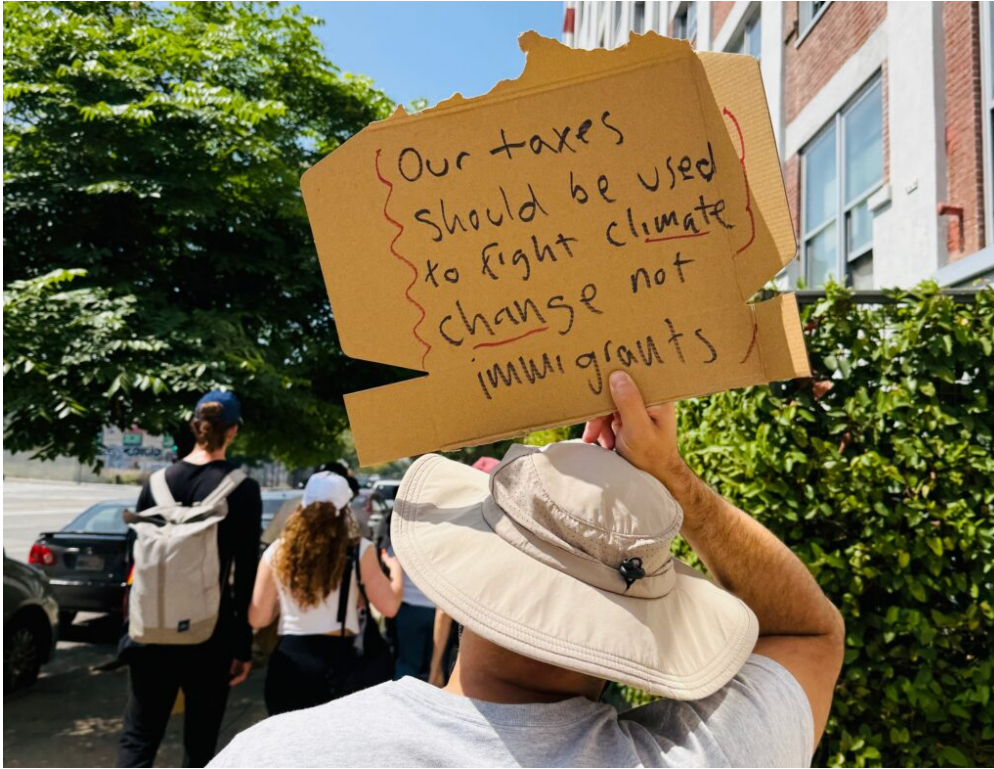 Our taxes
should be used
to fight climate
change not
immigrants